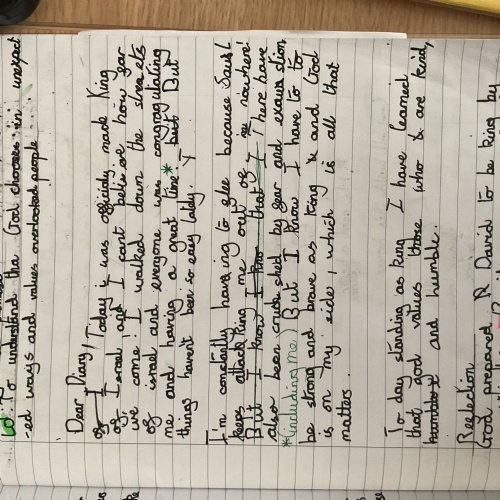 LO: To understand tha God chooses in unexpect
-ed ways and values overlooked people
Dear Diary,
Today is was officialy made King
of Israel and I cant believe how gar
we come. I walked down the streets
of israel and everyone was congratulating
me and having a great time* but But
things havent been so easy lately. I
I'm constantly having to flee because Saul
keeps attacking me out of nowhere!
But I know that I There have
also been crushed by gear and exaustion
*(including me) But I know I have to to
be strong and brave as King & and God
is on my side, which is all that
matters.
To day standing as king I have learned
that god values those who & are kind,
humble and humble.
Reflection
God prepared R David to be king by